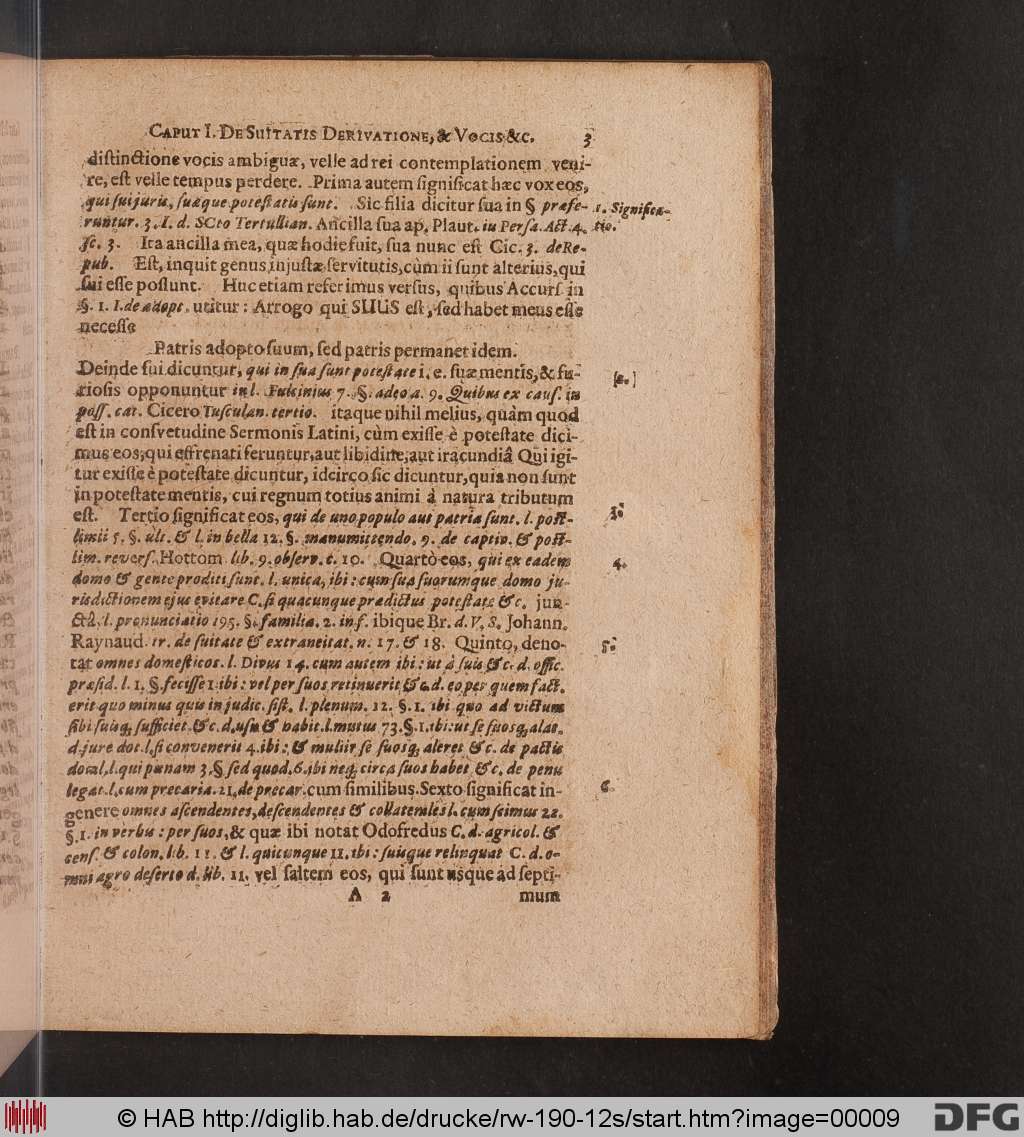 CAPUT I. DE SUITATIS DERIVATIONE, & VOCIS &c. 3
distinctione vocis ambiguæ, velle ad rei contemplationem veni-
re, est velle tempus perdere. Prima autem significat hæc vox eos,
qui sui juris, suæque potestatis sunt. Sic filia dicitur sua in § præfe- 1. Significa-
runtur. 3. I. d. SCto Tertullian. Ancilla sua ap. Plaut. in Persa. Act. 4. tio.
sc. 3. Ita ancilla mea, quæ hodie fuit, sua nunc est Cic. 3. de Re-
pub. Est, inquit genus injustæ servitutis, cùm ii sunt alterius, qui
sui esse possunt. Huc etiam referimus versus, quibus Accurs. in
§. 1. I. de adopt. utitur: Arrogo qui SUUS est, sed habet meus esse
necesse
Patris adopto suum, sed patris permanet idem.
Deinde sui dicuntur, qui in sua sunt potestate i. e. suæ mentis, & fu- [2.]
riosis opponuntur in l. Fulcinius 7. §. adeo a. 9. Quibus ex caus. in
poss. eat. Cicero Tusculan. tertio. itaque nihil melius, quàm quod
est in consvetudine Sermonis Latini, cùm exisse è potestate dici-
mus eos, qui effrenati feruntur, aut libidine, aut iracundiâ Qui igi-
tur exisse è potestate dicuntur, idcirco sic dicuntur, quia non sunt
in potestate mentis, cui regnum totius animi â natura tributum
est. Tertio significat eos, qui de uno populo aut patria sunt. l. post- 3.
liminii 5. §. ult. & l. in bella 12. §. manumittendo. 9. de captiv. & post-
lim. revers. Hottom lib. 9. observ. c. 10. Quartò eos, qui ex eadem 4.
domo & gente proditi sunt. l. unica, ibi: cum sua suorumque domo ju-
risdictionem ejus evitare C. si quacunque prædictus potestate &c. jun-
ctâ. l. pronunciatio 195. §. familiæ. 2. in f. ibique Br. d. V. S. Johann.
Raynaud. tr. de suitate & extraneitat. n. 17. & 18. Quinto, deno- 5.
tat omnes domesticos. l. Divus 14. cum autem ibi: ut à suis &c. d. offic.
præsid. l. 1. §. fecisse 1. ibi: vel per suos retinuerit &c. d. eo per quem fact.
erit quo minus quis in judic. sist. l. plenum. 12. §. 1. ibi quo ad victum
sibi suisq; sufficiet. &c. d. usu & habit. l. mutus 73. §. 1. ibi: ut se suosq; alat.
d. jure dot. l. si convenerit 4. ibi: & mulier se suosq; aleret &c. de pactis
dotal, l. qui pœnam 3. § sed quod. 6. ibi neq; circa suos habet &c. de penu
legat. l. cum precaria. 21. de precar. cum similibus. Sexto significat in- 6.
genere omnes ascendentes, descendentes & collaterales l. cum scimus 22.
§. 1. in verbis: per suos, & quæ ibi notat Odofredus C. d. agricol. &
cens. & colon. lib. 11. & l. quicunque 11. ibi: suisque relinquat C. d. o-
mni agro deserto d. lib. 11. vel saltem eos, qui sunt usque ad septi-
A 2 mum
© HAB http://diglib.hab.de/drucke/rw-190-12s/start.htm?image=00009
DFG